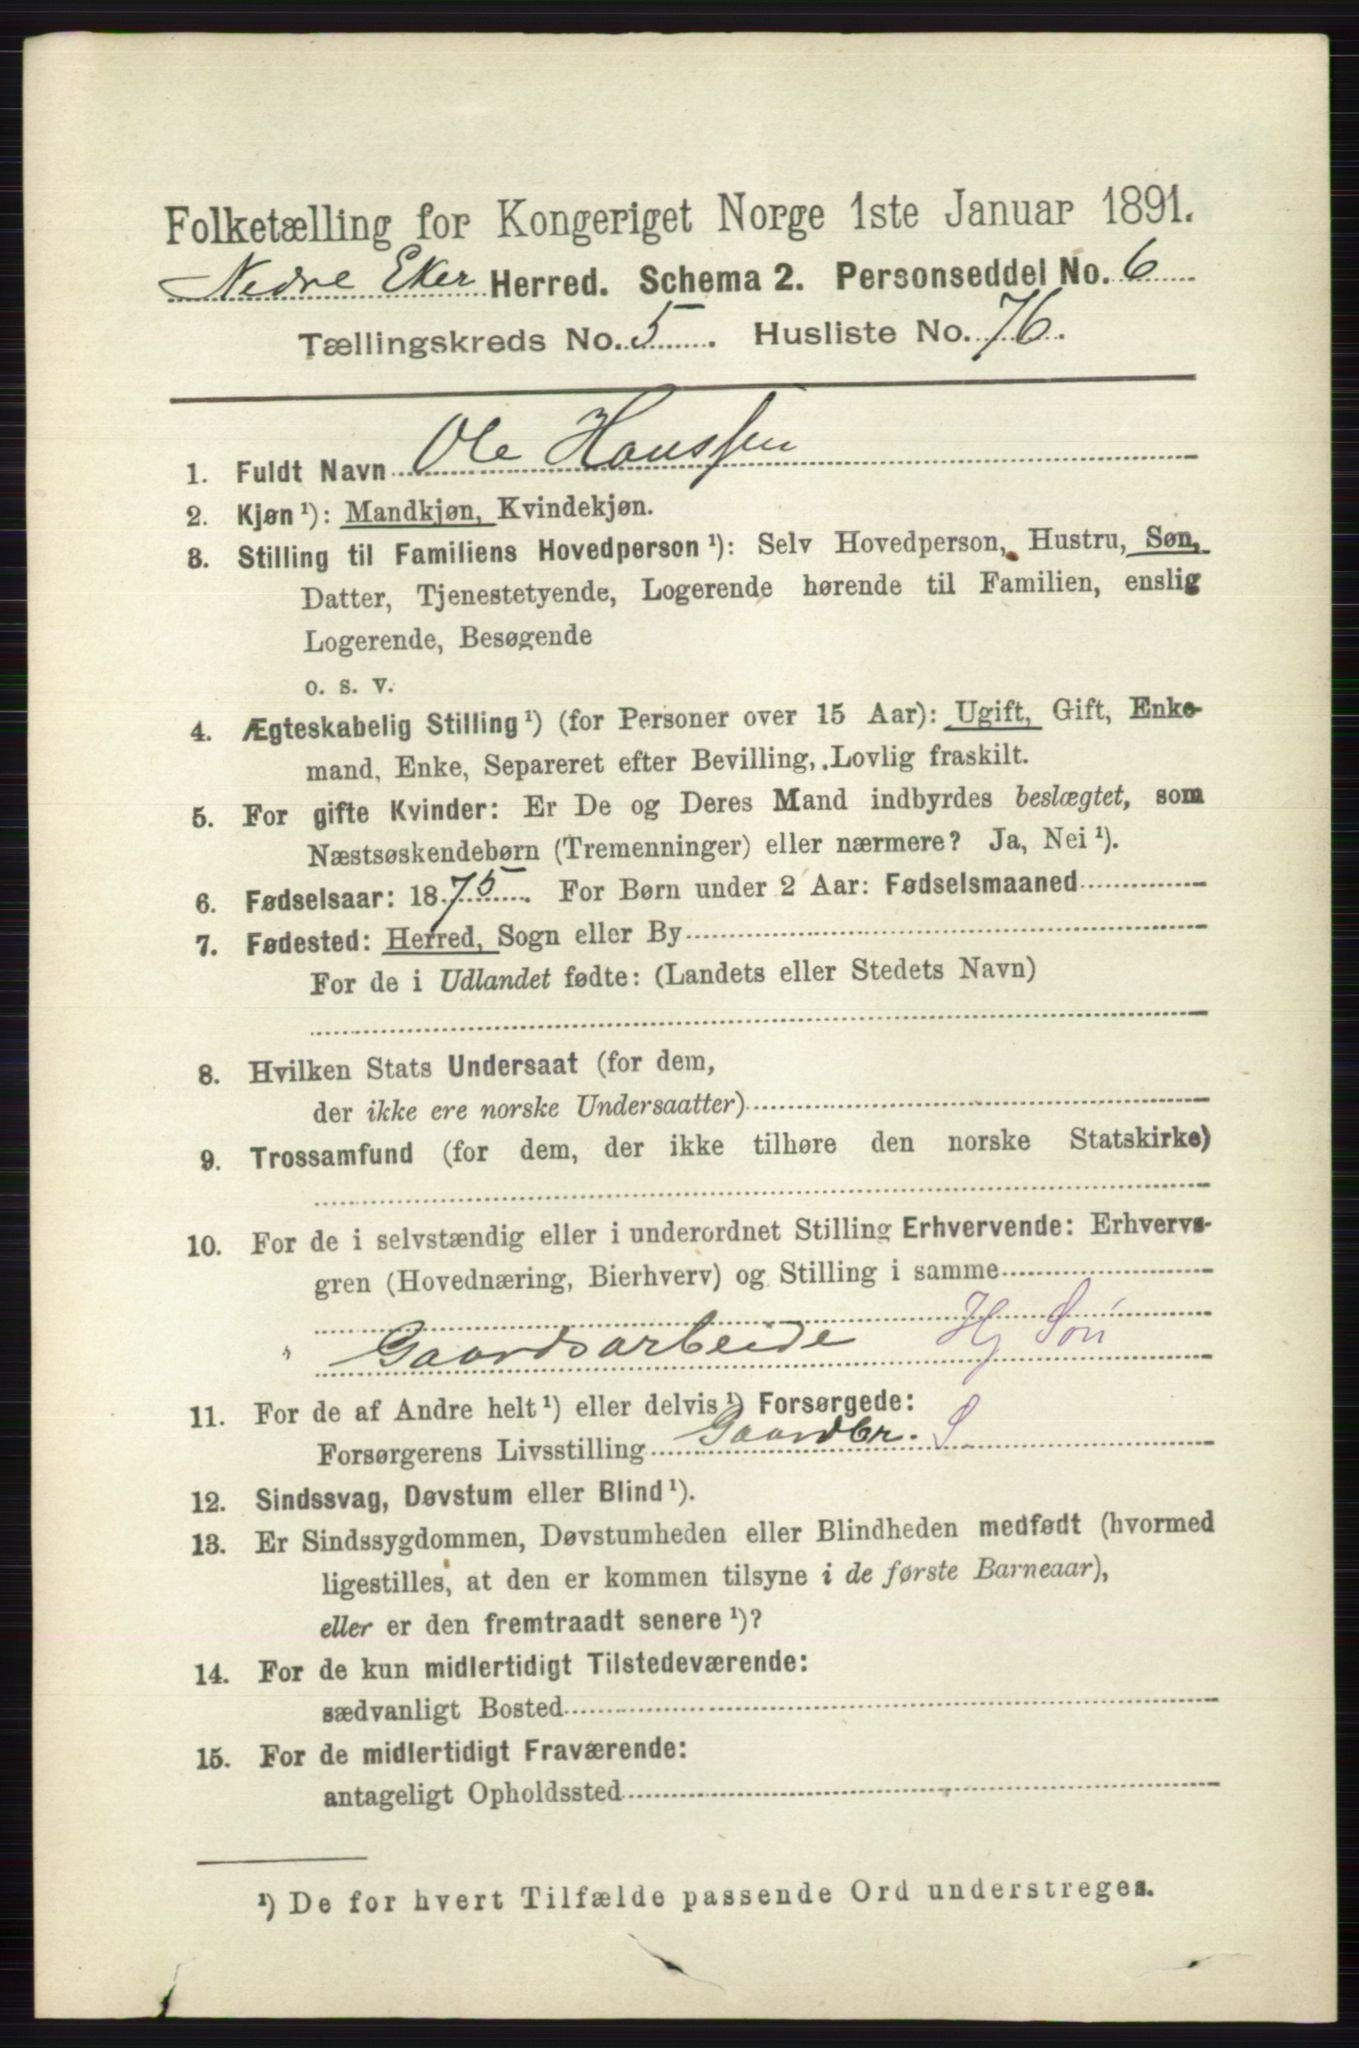 Folketælling for Kongeriget Norge 1ste Januar 1891.
Nedre Eker Herred. Schema 2. Personseddel No. 6
Tællingskreds No. 5. Husliste No. 76.
1. Fuldt Navn Ole Hanssen
2. Kjøn ¹): Mandkjøn, Kvindekjøn.
3. Stilling til Familiens Hovedperson ¹): Selv Hovedperson, Hustru, Søn,
Datter, Tjenestetyende, Logerende hørende til Familien, enslig
Logerende, Besøgende
o. s. v.
4. Ægteskabelig Stilling ¹) (for Personer over 15 Aar): Ugift, Gift, Enke-
mand, Enke, Separeret efter Bevilling, Lovlig fraskilt.
5. For gifte Kvinder: Er De og Deres Mand indbyrdes beslægtet, som
Næstsøskendebørn (Tremenninger) eller nærmere? Ja, Nei ¹).
6. Fødselsaar: 1875. For Børn under 2 Aar: Fødselsmaaned
7. Fødested: Herred, Sogn eller By
For de i Udlandet fødte: (Landets eller Stedets Navn)
8. Hvilken Stats Undersaat (for dem,
der ikke ere norske Undersaatter)
9. Trossamfund (for dem, der ikke tilhøre den norske Statskirke)
10. For de i selvstændig eller i underordnet Stilling Erhvervende: Erhvervs-
gren (Hovednæring, Bierhverv) og Stilling i samme
Gaardsarbeide Hj Søn
11. For de af Andre helt ¹) eller delvis ¹) Forsørgede:
Forsørgerens Livsstilling Gaardbr. S
12. Sindssvag, Døvstum eller Blind ¹).
13. Er Sindssygdommen, Døvstumheden eller Blindheden medfødt (hvormed
ligestilles, at den er kommen tilsyne i de første Barneaar),
eller er den fremtraadt senere ¹)?
14. For de kun midlertidigt Tilstedeværende:
sædvanligt Bosted
15. For de midlertidigt Fraværende:
antageligt Opholdssted
¹) De for hvert Tilfælde passende Ord understreges.